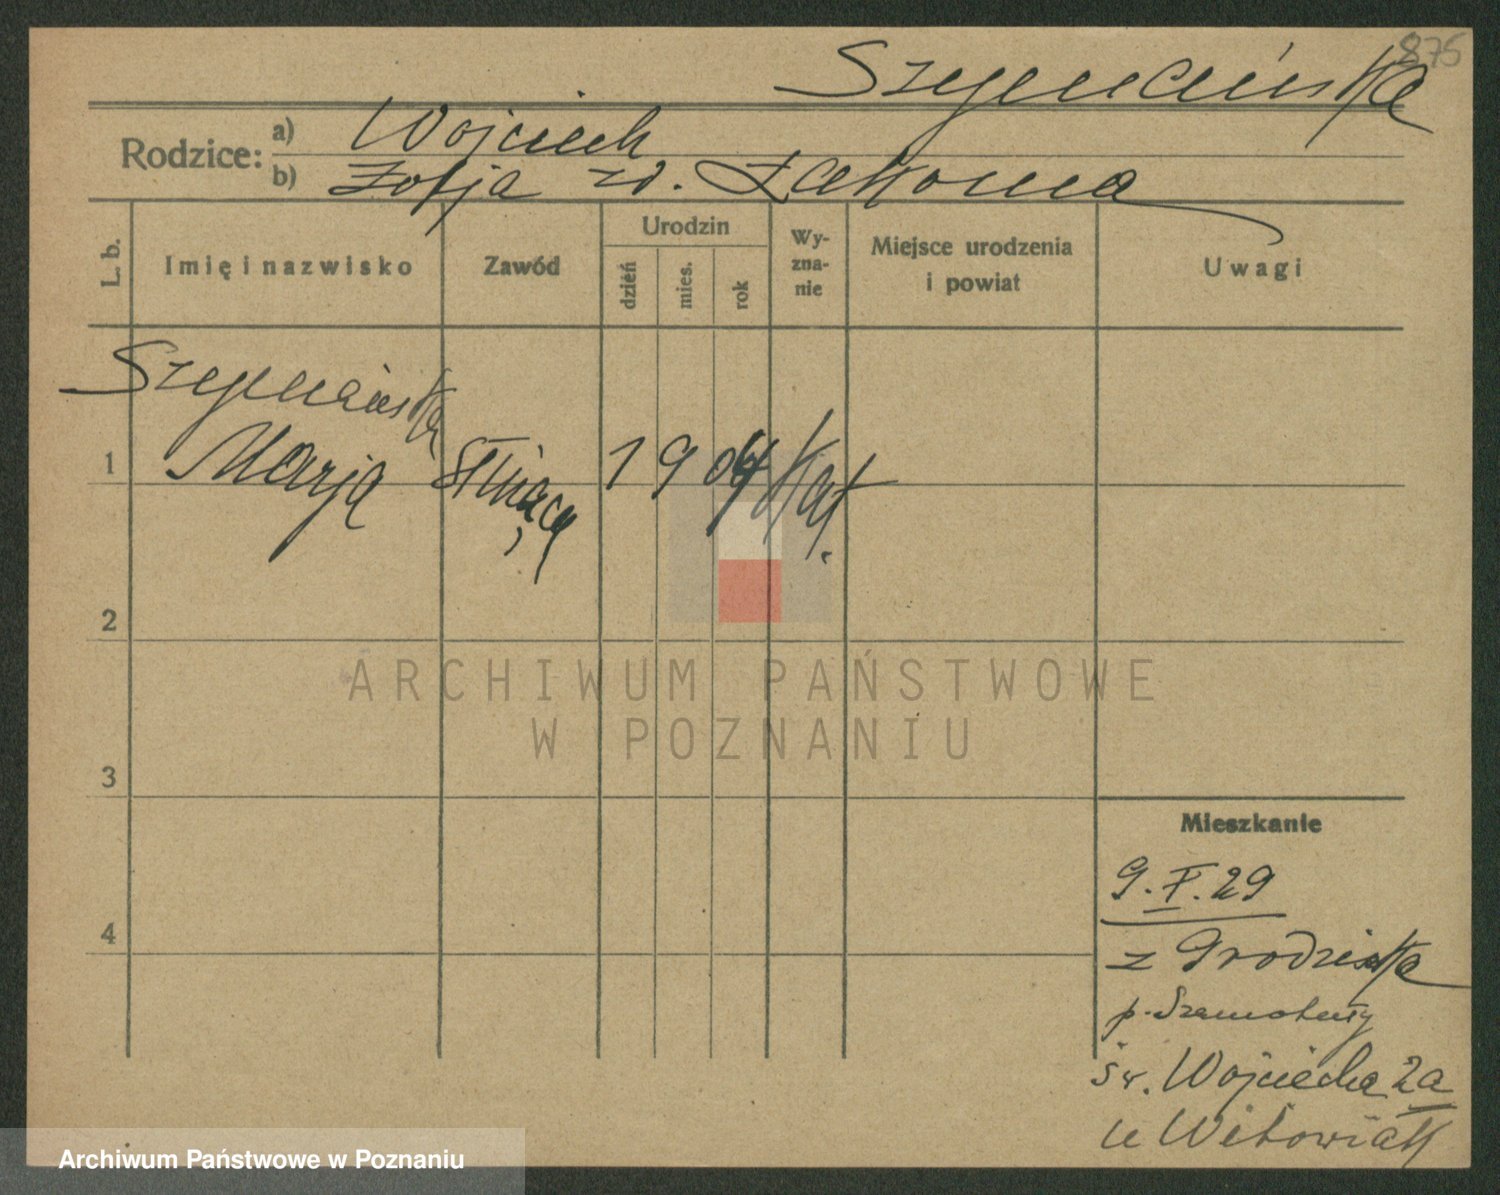 875
Szymańska
Rodzice: a) Wojciech
b) Zofja zd. Łakoma
L. b.
Imię i nazwisko
Zawód
Urodzin
dzień
mies.
rok
Wy-
zna-
nie
Miejsce urodzenia
i powiat
Uwagi
Szymańska
1 Marja służący 1904 kat.
2
3
4
Mieszkanie
9.X.29
z Grodziska
p. Szamotuły
św. Wojciecha 2a
u Witowiak
ARCHIWUM PAŃSTWOWE
W POZNANIU
Archiwum Państwowe w Poznaniu